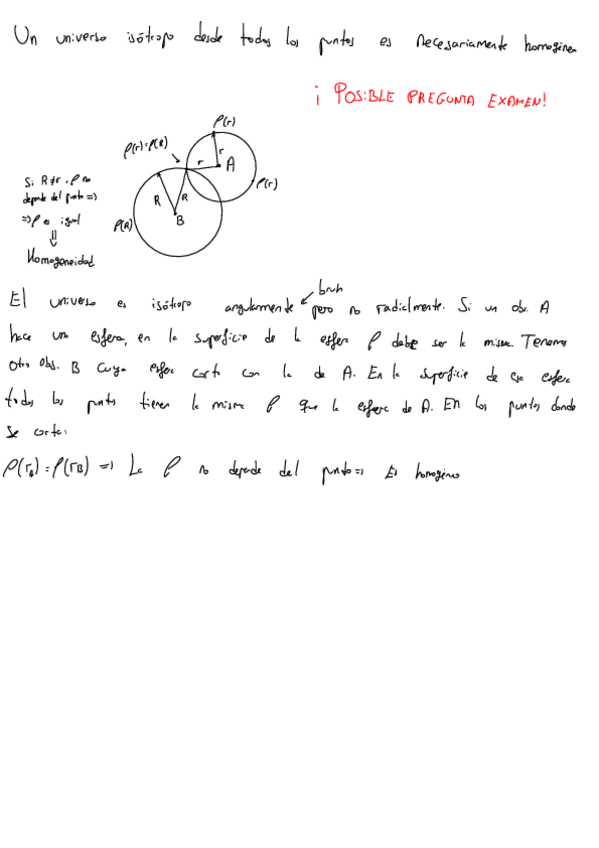 Un universo isótropo desde todos los puntos es necesariamente homogéneo
¡ POSIBLE PREGUNTA EXAMEN!
ρ(r)
ρ(r)=ρ(R)
r
r
A
ρ(r)
Si R≠r, ρ no
depende del punto =>
=> ρ es igual
⇓
Homogeneidad
R
R
B
ρ(R)
bruh
El universo es isótropo angularmente pero no radialmente. Si un obs. A
hace una esfera, en la superficie de la esfera ρ debe ser la misma. Tenemos
otro obs. B cuya esfera corta con la de A. En la superficie de esa esfera
todos los puntos tienen la misma ρ que la esfera de A. EN los puntos donde
se corta:
ρ(rA)=ρ(rB) => La ρ no depende del punto => Es homogéneo